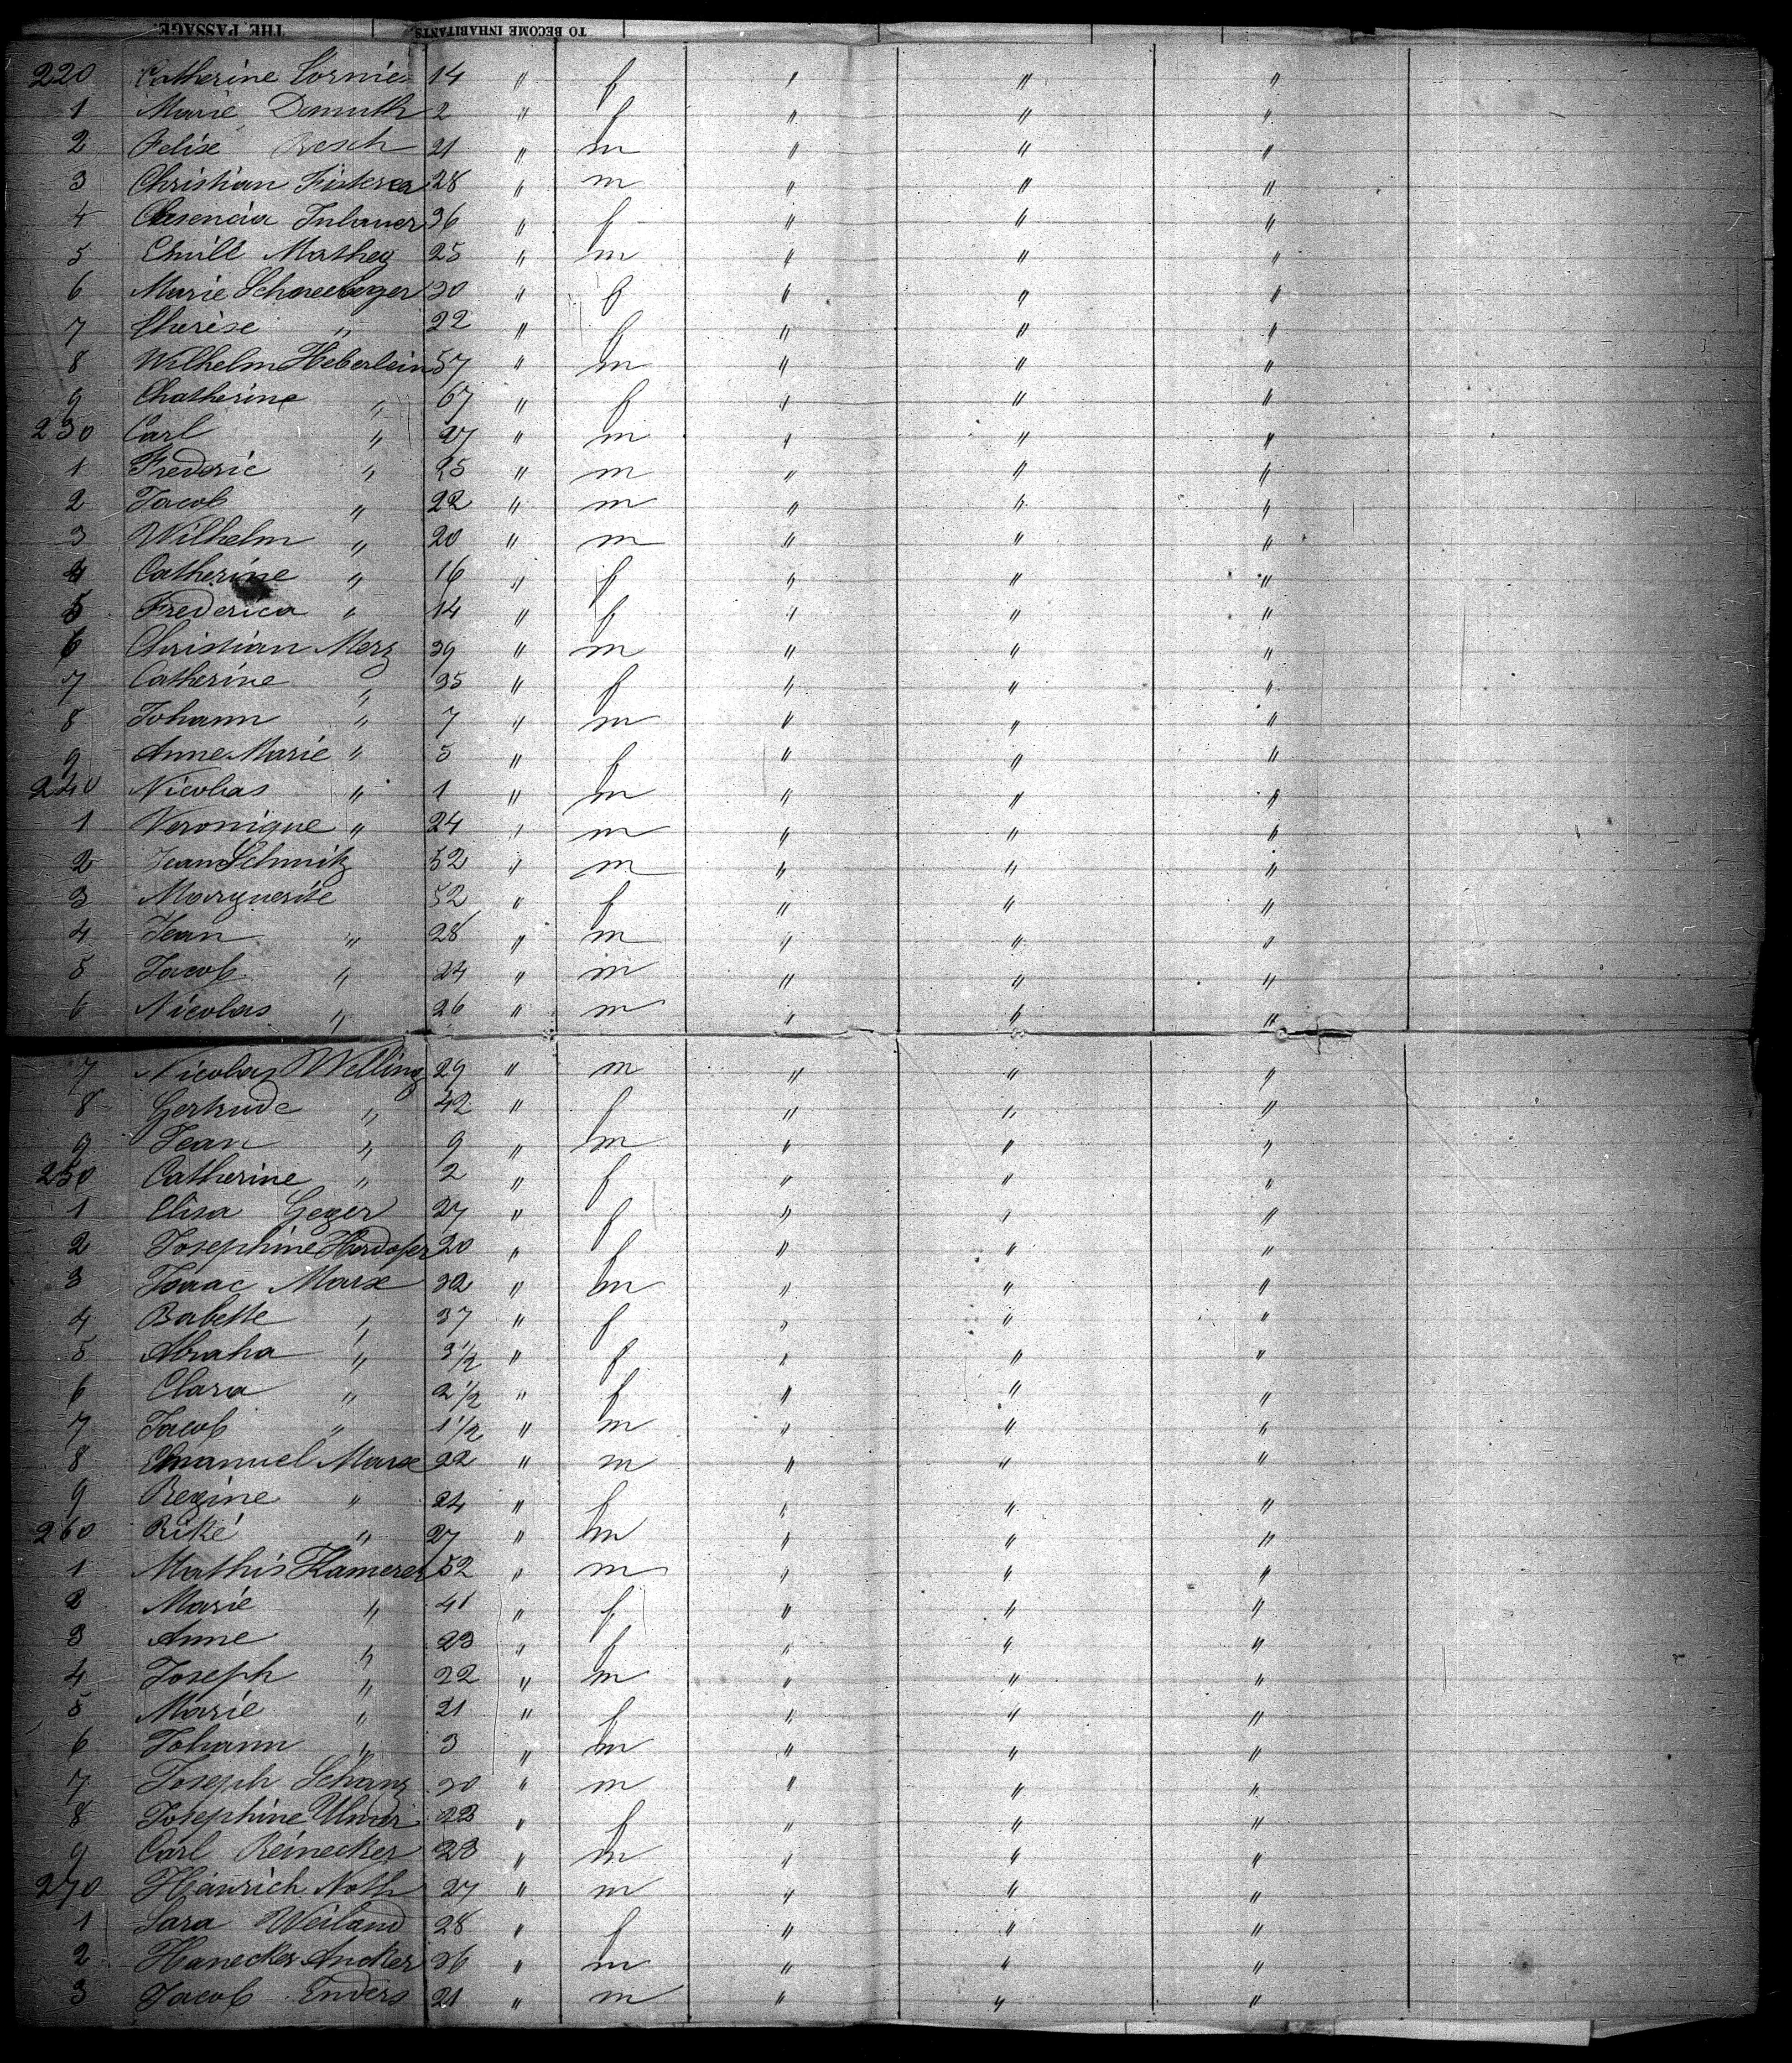 THE PASSAGE. TO BECOME INHABITANTS
220 Catherine 14 " f " " "
1 Marie Demuth 2 " f " " "
2 Felixe Resch 21 " m " " "
3 Christian Fisterer 28 " m " " "
4 Inhauer 36 " f " " "
5 Emill Mathey 25 " m " " "
6 Marie Schneeberger 30 " f " " "
7 Therèse " 22 " f " " "
8 Wilhelm Heberlein 57 " m " " "
9 Chatherine " 67 " f " " "
230 Carl " 27 " m " " "
1 Frederic " 25 " m " " "
2 Jacob " 22 " m " " "
3 Wilhelm " 20 " m " " "
4 Catherine " 16 " f " " "
5 Frederica " 14 " f " " "
6 Christian Merz 39 " m " " "
7 Catherine " 35 " f " " "
8 Johann " 7 " m " " "
9 Anne Marie " 5 " f " " "
240 Nicolas " 1 " m " " "
1 Veronique " 24 " m " " "
2 Jean Schmitz 52 " m " " "
3 Marguerite 52 " f " " "
4 Jean " 28 " m " " "
5 Jacob " 24 " m " " "
6 Nicolas " 26 " m " " "
7 Nicolas Welling 29 " m " " "
8 Gertrude " 42 " f " " "
9 Jean " 9 " m " " "
250 Catherine " 2 " f " " "
1 Elisa Geyer 27 " f " " "
2 Josephine 20 " f " " "
3 Isaac Marx 32 " m " " "
4 Babette " 37 " f " " "
5 Abraha " 3 1/2 " f " " "
6 Clara " 2 1/2 " f " " "
7 Jacob " 1 1/2 " m " " "
8 Emanuel Marx 22 " m " " "
9 Regine " 24 " f " " "
260 Riké " 27 " m " " "
1 Mathis Kamerer 52 " m " " "
2 Marie " 41 " f " " "
3 Anne " 23 " f " " "
4 Joseph " 22 " m " " "
5 Marie " 21 " f " " "
6 Johann " 3 " m " " "
7 Joseph Schanz 30 " m " " "
8 Josephine Ulmer 23 " f " " "
9 Carl Reinecker 23 " m " " "
270 Heinrich Noth 27 " m " " "
1 Sara Weiland 28 " f " " "
2 Hanecker Ancker 36 " m " " "
3 Jacob Enders 21 " m " " "